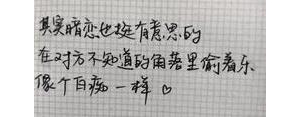 其实暗恋也挺有意思的
在对方不知道的角落里偷着乐
像个白痴一样♡